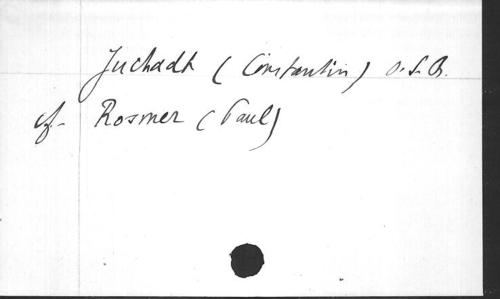 Juchadt (Constantin) O.S.B.
cf. Rosmer (Paul)